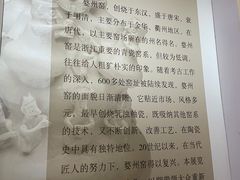 婺州窑，创烧于东汉，盛于唐宋，衰
于明清，主要分布于金华、衢州地区，在
唐代，以主要窑场所在的州名得名。婺州
窑是浙江重要的青瓷窑系，但较为低调，
往往给人粗犷朴实的印象。随着考古工作
的深入，600多处窑址被陆续发现，婺州
窑的面貌日渐清晰，它贴近市场，风格多
元，最早创烧乳浊釉瓷，既吸纳其他窑系
的技术，又不断创新、改善工艺，在陶瓷
史中具有独特地位。20世纪以来，在当代
匠人的努力下，婺州窑得以复兴。本展览